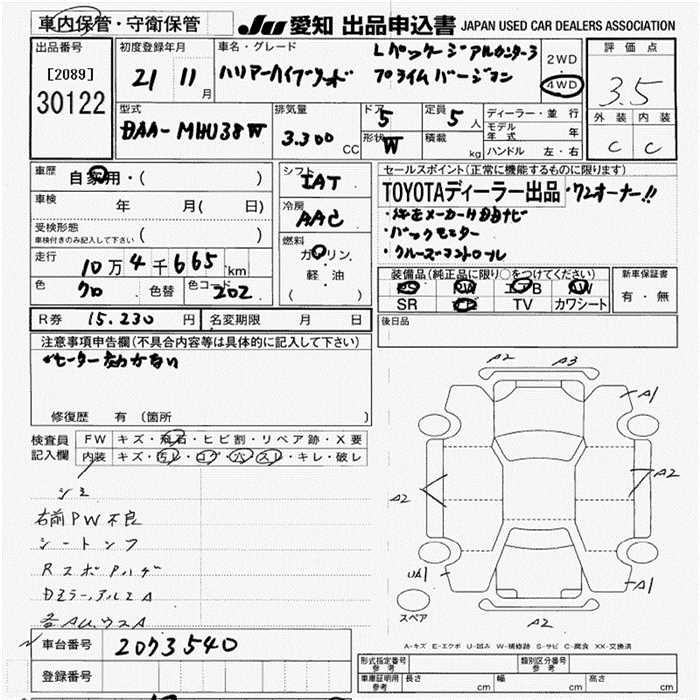 車内保管・守衛保管
JU 愛知 出品申込書 JAPAN USED CAR DEALERS ASSOCIATION
出品番号
[2089]
30122
初度登録年月
21 11月
車名・グレード
ハリアーハイブリッド
Lパッケージアルカンターラ
プライムバージョン
2WD
4WD
評価点
3.5
外装 内装
C C
型式
DAA-MHU38W
排気量
3.300 CC
ドア
5
形状
W
定員
5人
積載
kg
ディーラー・並行
モデル年式 年
ハンドル 左・右
車歴
自家用・( )
車検
年 月( 日)
受検形態
車検付きのみ記入して下さい ( )
走行
10万4千665km
色
クロ
色替
色コード
202
シフト
IAT
冷房
AAC
燃料
ガソリン
軽・油
( )
セールスポイント(正常に機能するものに限ります)
TOYOTAディーラー出品・1オーナー!!
・純正メーカーHDDナビ
・バックモニター
・クルーズコントロール
装備品(純正品に限り○をつけてください)
PS PW エアB AW
SR TV カワシート
新車保証書
有・無
後日品
R券 15.230円
名変期限 月 日
注意事項申告欄(不具合内容等は具体的に記入して下さい)
ヒーター効かない
修復歴 有(箇所 )
検査員記入欄
FW キズ・飛石・ヒビ割・リペア跡・X要
内装 キズ・汚レ・コゲ・穴・スレ・キレ・破レ
シミ
右前PW不良
シートシワ
RスポPハゲ
DミラーアルミA
車台番号
2073540
登録番号
A2 A3
A1
A2
A2
UA1
A1
A2
スペア
A-キズ E-エクボ U-凹み W-補修跡 S-サビ C-腐食 XX-交換済
形式指定番号 参考
類別区分番号 参考
車庫証明用 参考 長さ cm 幅 cm 高さ cm